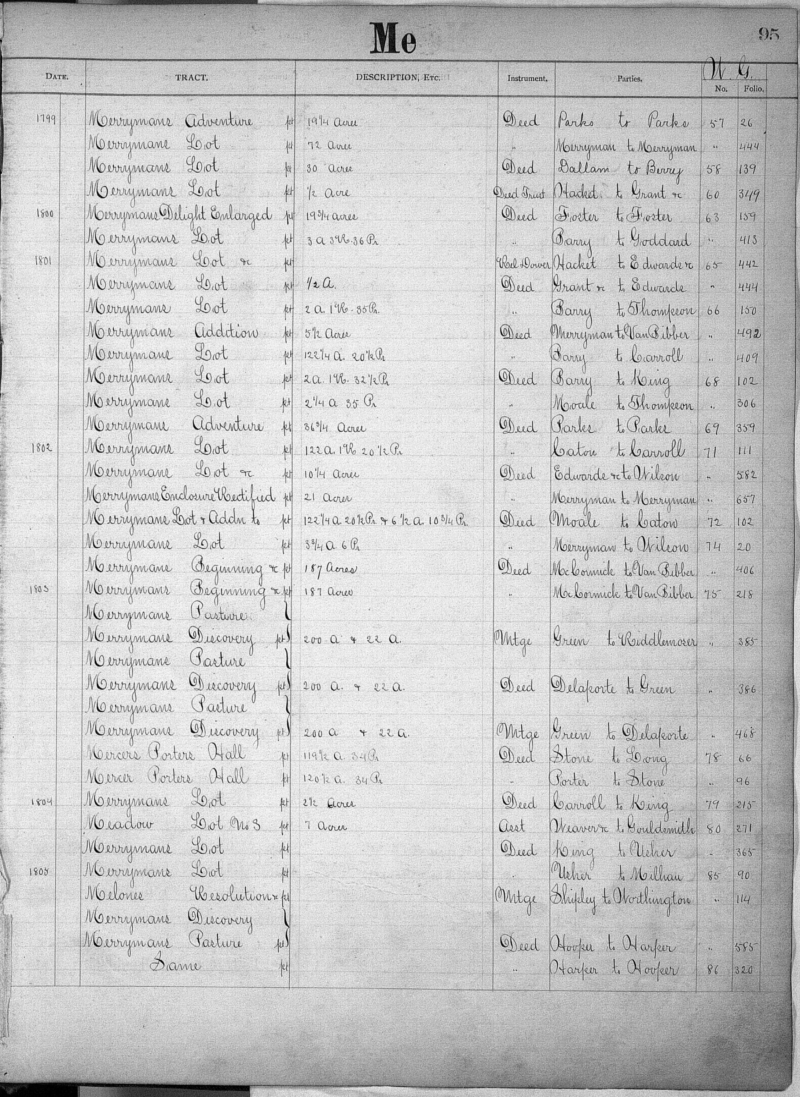 95
Me
W. G.
DATE. TRACT. DESCRIPTION, ETC. Instrument, Parties. No. Folio.
1799 Merrymans Adventure pt 19 1/4 Acres Deed Parks to Parks 57 26
Merrymans Lot pt 72 Acres " Merryman to Merryman " 444
Merrymans Lot pt 30 Acres Deed Dallam to Berry 58 139
Merrymans Lot pt 1/2 Acre Deed Trust Hacket to Grant &c 60 349
1800 Merrymans Delight Enlarged pt 19 3/4 Acres Deed Foster to Foster 63 159
Merrymans Lot pt 3 a 3 R 36 Ps " Barry to Goddard " 413
1801 Merrymans Lot &c pt Rel. Dower Hacket to Edwards &c 65 442
Merrymans Lot pt 1/2 A. Deed Grant &c to Edwards " 444
Merrymans Lot pt 2 a. 1 R. 35 Ps. " Barry to Thompson 66 150
Merrymans Adddtion pt 5 1/2 Acres Deed Merryman to Van Bibber " 492
Merrymans Lot pt 122 1/4 a. 20 1/2 Ps " Barry to Carroll " 409
Merrymans Lot pt 2 a. 1 R. 32 1/2 Ps Deed Barry to King 68 102
Merrymans Lot pt 2 1/4 a 35 Ps " Moale to Thompson " 306
Merrymans Adventure pt 36 3/4 Acres Deed Parks to Parks 69 359
1802 Merrymans Lot pt 122 a 1 R 20 1/2 Ps " Caton to Carroll 71 111
Merrymans Lot &c pt 10 1/4 Acres Deed Edwards &c to Wilson " 582
Merrymans Enclosure Rectified pt 21 Acres " Merryman to Merryman " 657
Merrymans Lot & Addn to pt 122 1/4 a 20 1/2 Ps & 6 1/2 a 10 3/4 Ps Deed Moale to Caton 72 102
Merrymans Lot pt 3 3/4 A 6 Ps " Merryman to Wilson 74 20
Merrymans Beginning &c pt 187 Acres Deed McCormick to Van Bibber " 406
1803 Merrymans Beginning &c pt 187 Acres " McCormick to Van Bibber 75 218
Merrymans Pasture
Merrymans Discovery pt 200 a & 22 A. Mtge Green to Riddlemoser " 385
Merrymans Pasture
Merrymans Discovery pt 200 a. & 22 a. Deed Delaporte to Green " 386
Merrymans Pasture
Merrymans Discovery pt 200 a & 22 a. Mtge Green to Delaporte " 468
Mercers Porters Hall pt 119 1/2 a. 34 Ps Deed Stone to Long 78 66
Mercer Porters Hall pt 120 1/2 a. 34 Ps " Porter to Stone " 96
1804 Merrymans Lot pt 2 1/2 Acres Deed Carroll to King 79 215
Meadow Lot No 3 pt 7 Acres Asst Weaver &c to Gouldsmith 80 271
Merrymans Lot pt Deed King to Usher " 365
1805 Merrymans Lot pt " Usher to Milhau 85 90
Melones Resolution &c pt Mtge Shipley to Worthington " 114
Merrymans Discovery
Merrymans Pasture pt Deed Hooper to Harper " 585
Same pt " Harper to Hooper 86 320